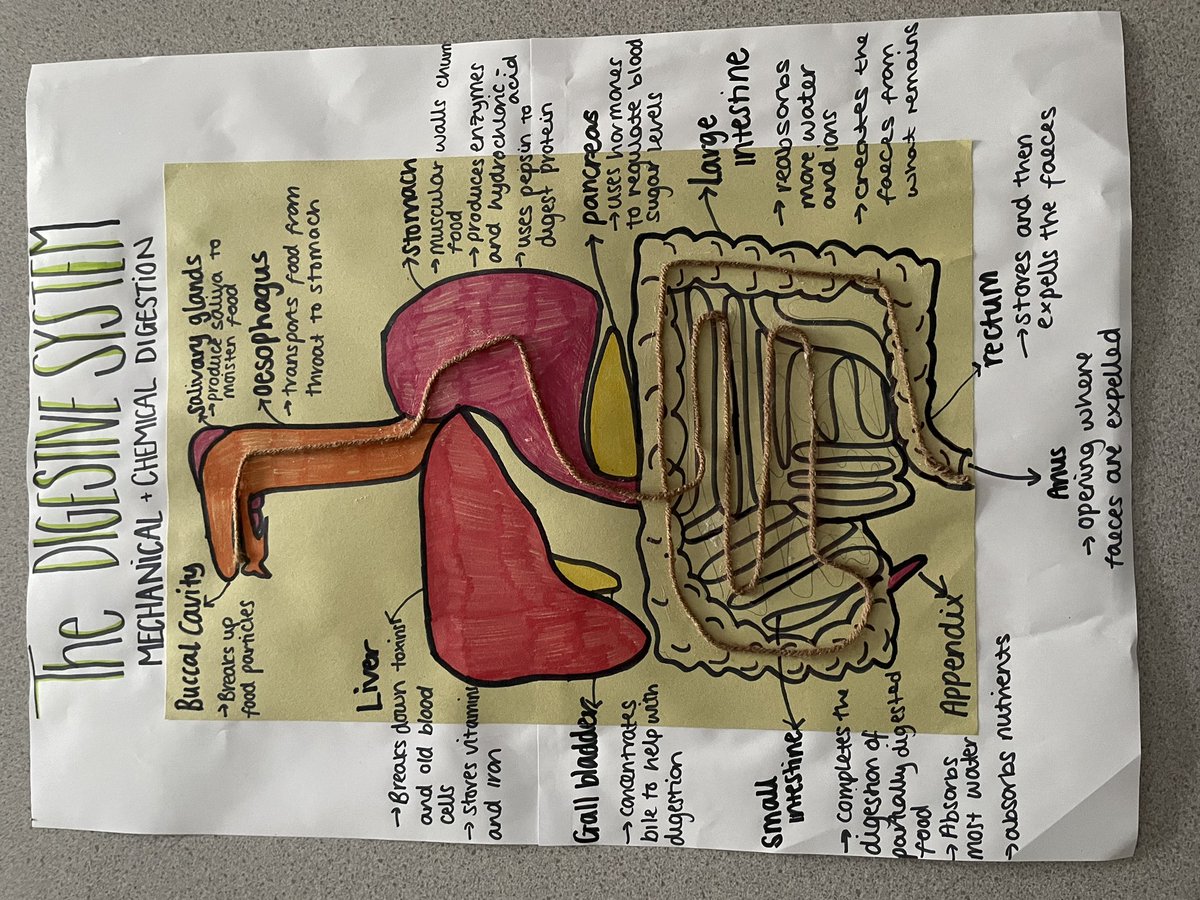 The DIGESTIVE SYSTEM
MECHANICAL + CHEMICAL DIGESTION
Buccal Cavity
→ Breaks up
food particles
salivary glands
→ produce saliva to
moisten food
oesophagus
→ transports food from
throat to stomach
Liver
→ Breaks down toxins
and old blood
cells
→ stores vitamins
and iron
stomach
→ muscular walls churn
food
→ produces enzymes
and hydrochloric
acid
→ uses pepsin to
digest protein
Gall bladder
→ concentrates
bile to help with
digestion
pancreas
→ uses hormones
to regulate blood
sugar levels
Large
intestine
→ reabsorbs
more water
and ions
→ creates the
faeces from
what remains
small
intestine
→ completes the
digestion of
partially digested
food
→ Absorbs
most water
→ absorbs nutrients
Appendix
rectum
→ stores and then
expells the faeces
Anus
→ opening where
faeces are expelled